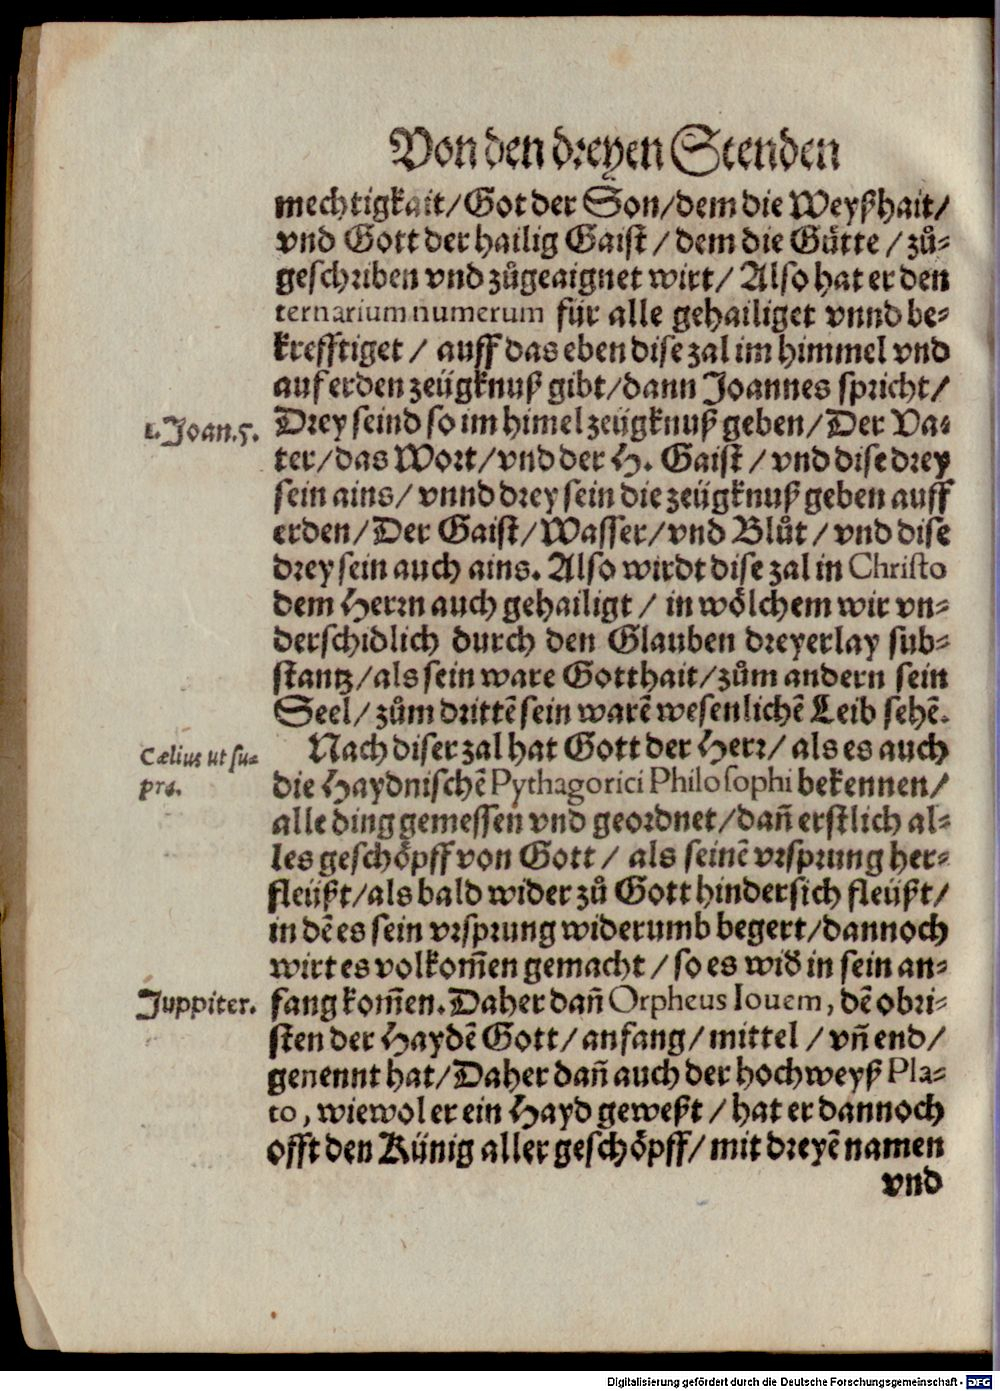 Von den dreyen Stenden
mechtigkait/Got der Son/dem die Weyßhait/
vnd Gott der hailig Gaist/dem die Gütte/zů-
geschriben vnd zůgeaignet wirt/Also hat er den
ternarium numerum für alle gehailiget vnnd be-
krefftiget/auff das eben dise zal im himmel vnd
auf erden zeügknuß gibt/dann Joannes spricht/
1.Joan.5. Drey seind so im himel zeügknuß geben/Der Va-
ter/das Wort/vnd der H. Gaist/vnd dise drey
sein ains/vnnd drey sein die zeügknuß geben auff
erden/Der Gaist/Wasser/vnd Blůt/vnd dise
drey sein auch ains. Also wirdt dise zal in Christo
dem Herrn auch gehailigt/in wölchem wir vn-
derschidlich durch den Glauben dreyerlay sub-
stantz/als sein ware Gotthait/zům andern sein
Seel/zům drittē sein warē wesenlichē Leib sehē.
Nach diser zal hat Gott der Herr/als es auch
Cælius ut su-
pra.
die Haydnischē Pythagorici Philosophi bekennen/
alle ding gemessen vnd geordnet/dañ erstlich al-
les geschöpff von Gott/als seinē vrsprung her-
fleüßt/als bald wider zů Gott hindersich fleüßt/
in dē es sein vrsprung widerumb begert/dannoch
wirt es volkom̄en gemacht/so es wid̄ in sein an-
Juppiter. fang kom̄en. Daher dañ Orpheus Iouem, dē obri-
sten der Haydē Gott/anfang/mittel/vñ end/
genennt hat/Daher dañ auch der hochweyß Pla-
to, wiewol er ein Hayd geweßt/hat er dannoch
offt den Künig aller geschöpff/mit dreyē namen
vnd
Digitalisierung gefördert durch die Deutsche Forschungsgemeinschaft - DFG